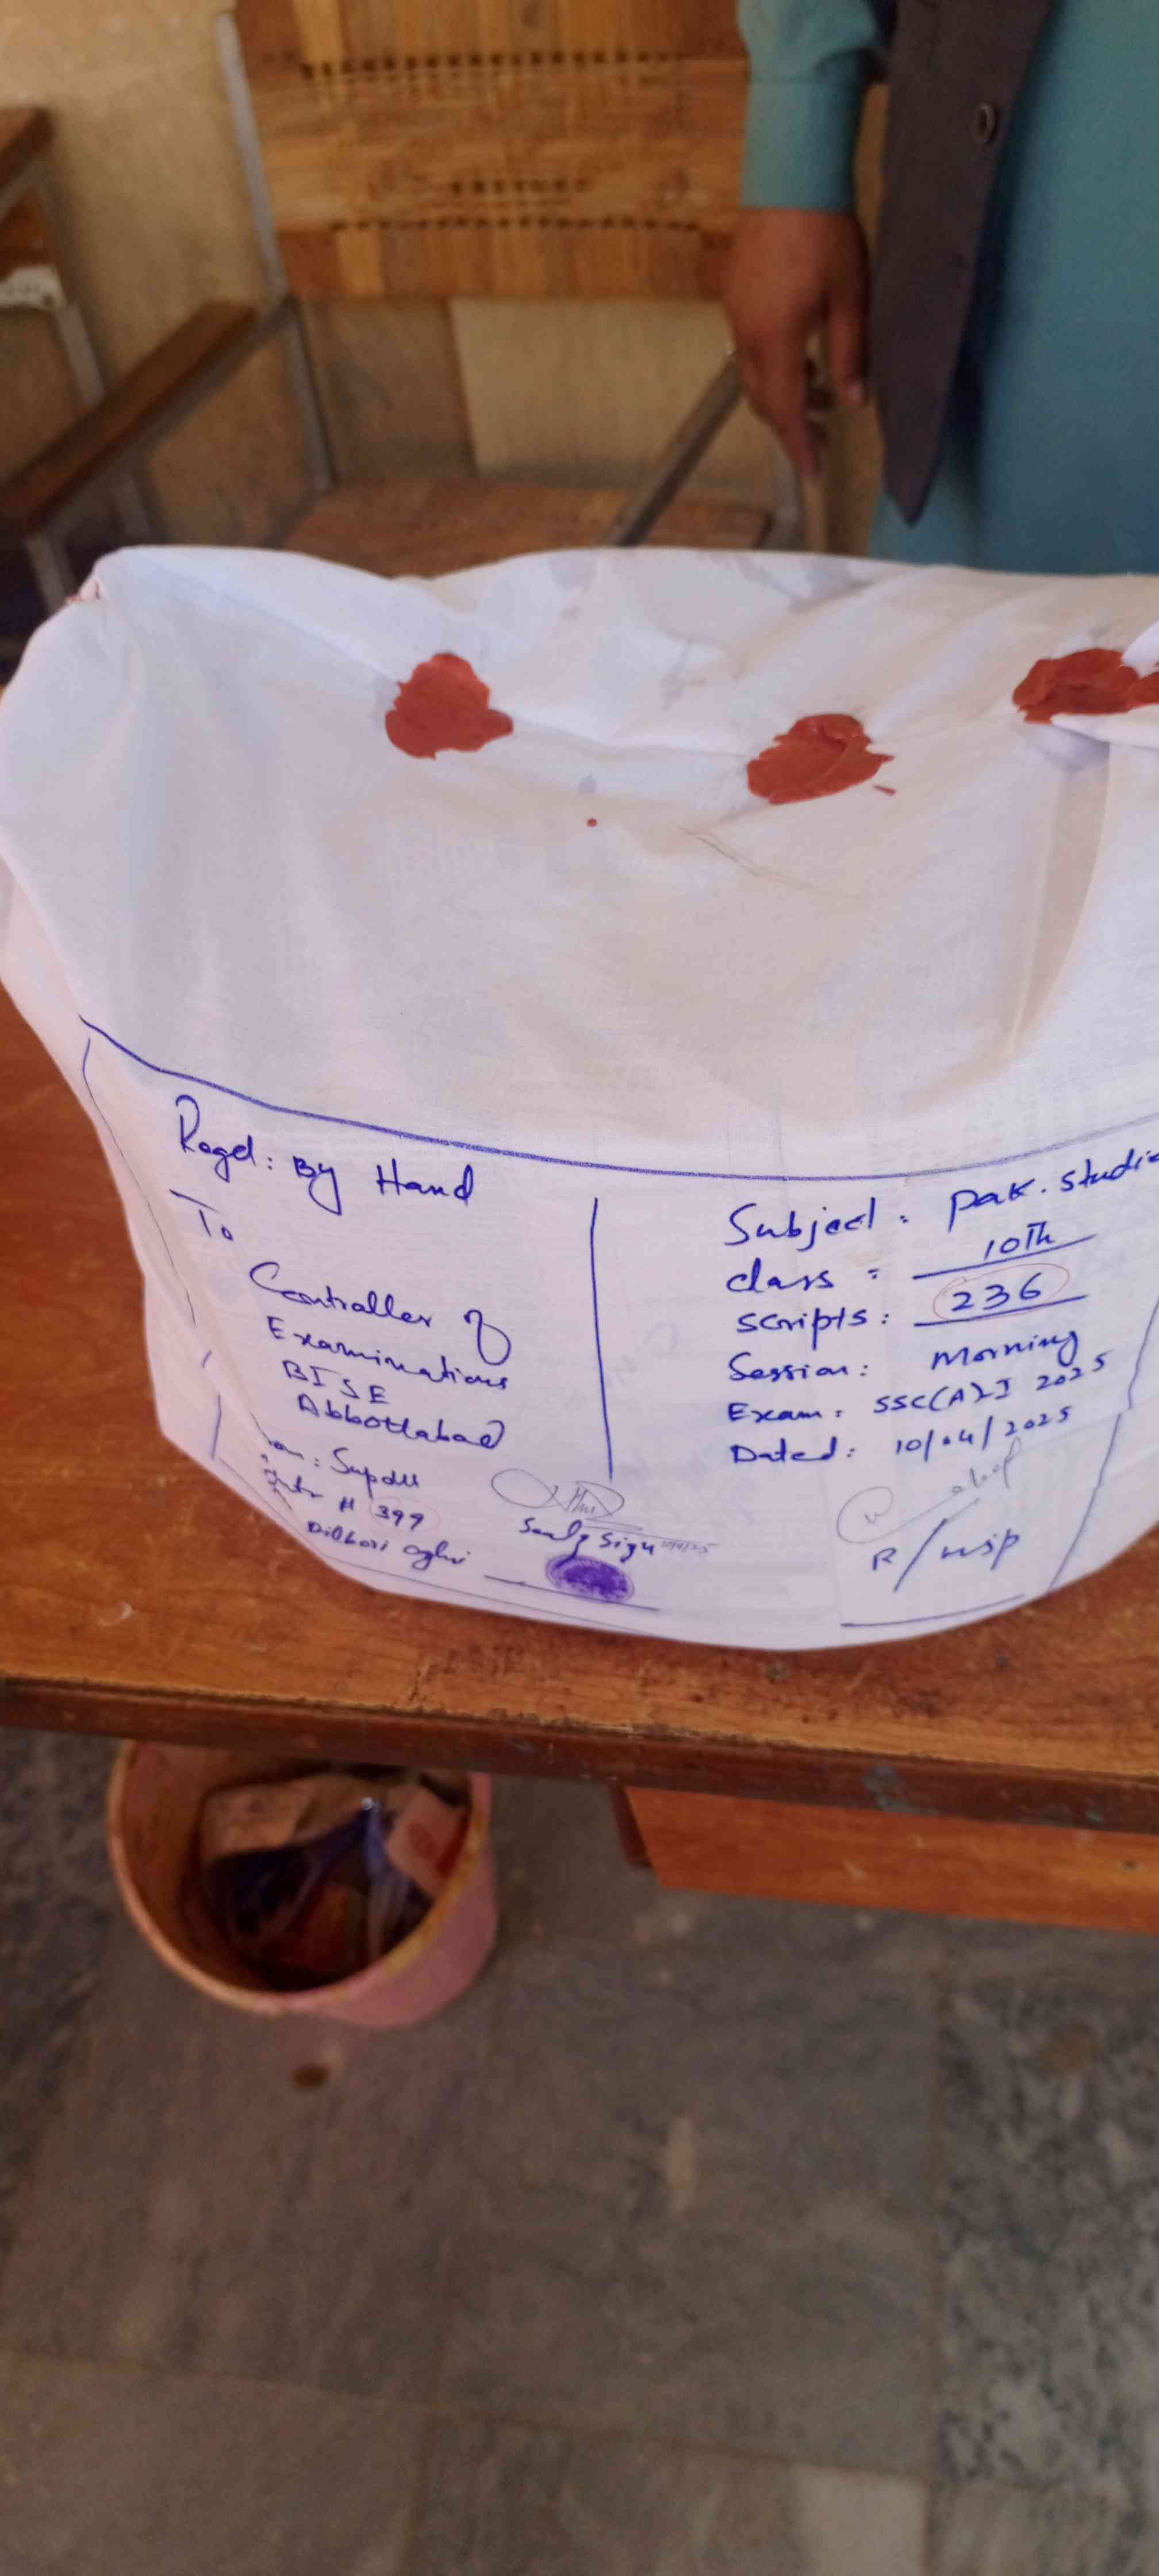 Regd: By Hand
To
Controller of
Examinations
BISE
Abbottabad
: Supdtt
# 399
Dilbori oghi
Seal & Sign
Subject: Pak. Studie
class: 10Th
scripts: 236
Session: Morning
Exam: SSC(A)-I 2025
Dated: 10/04/2025
R/